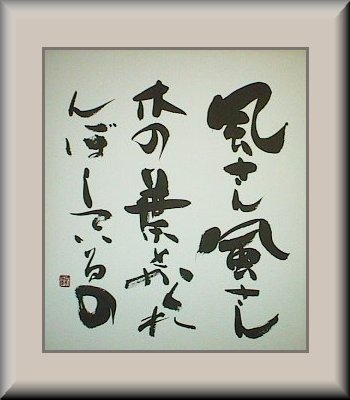 風さん風さん
木の葉とかくれ
んぼしているの